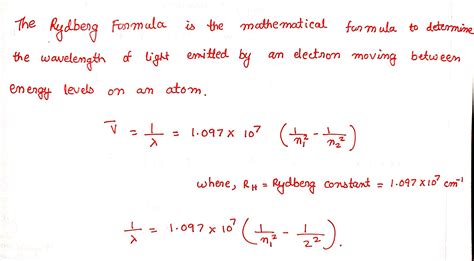 The Rydberg Formula is the mathematical formula to determine
the wavelength of light emitted by an electron moving between
energy levels on an atom.
V̅ = 1/λ = 1.097 × 10⁷ (1/n₁² - 1/n₂²)
where, R_H = Rydberg constant = 1.097 × 10⁷ cm⁻¹
1/λ = 1.097 × 10⁷ (1/n₁² - 1/2²).